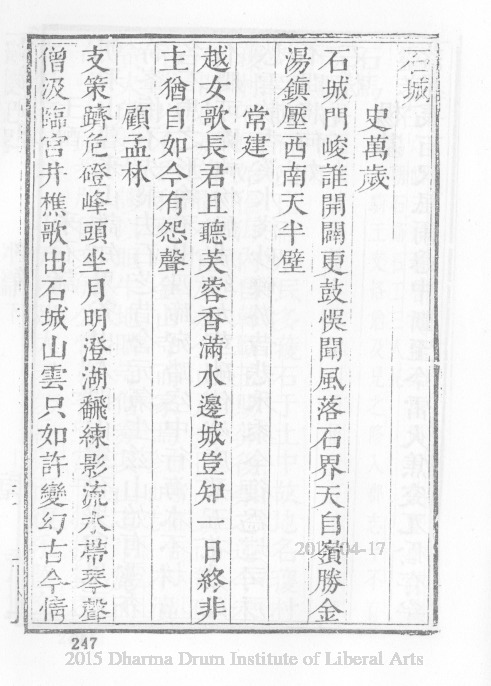 石城
史萬歲
石城門峻誰開闢更鼓悞聞風落石界天自嶺勝金
湯鎮壓西南天半壁
常建
越女歌長君且聽芙蓉香滿水邊城豈知 日終非
主猶自如今有怨聲
顧孟林
支策躋危磴峰頭坐月明澄湖飜練影流水帶琴聲
僧汲臨宮井樵歌出石城山雲只如許變幻古今情
247
2015-04-17
2015 Dharma Drum Institute of Liberal Arts